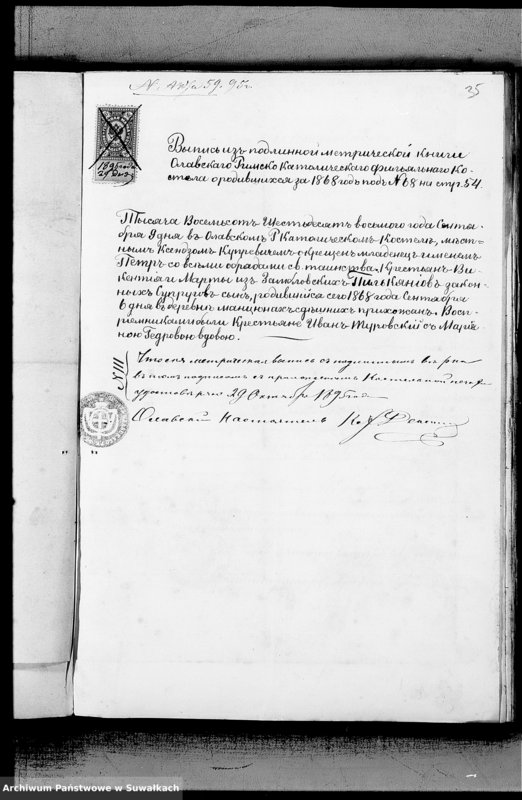 25
1895 года
29 Окт.
Выпись изъ подлинной метрической книги
Олавскаго Римско Католическаго филіальнаго Ко-
стела о родившихся за 1868 годъ подъ № 68 на стр. 54.
Тысяча Восемьсотъ Шестьдесятъ восьмого года Сентя-
бря 9 дня въ Олавскомъ Р Католическомъ Костелѣ, мѣст-
нымъ Ксендзомъ окрещенъ младенецъ именемъ
Петръ со всѣми обрядами св. таинства. Крестьянъ Ви-
кентія и Марты изъ закон-
ныхъ Супруговъ сынъ, родившійся сего 1868 года Сентября
6 дня въ деревнѣ здѣшнихъ прихожанъ. Вос-
пріемниками были Крестьяне Иванъ Туровскій съ Марія-
ною Гедровою вдовою.
№ 111
Что сія метрическая выпись съ подлинникомъ вѣрна
въ томъ подписомъ съ приложеніемъ Костельной печати
удостовѣряю 29 Октября 1895 года
Олавскій Настоятель Кс.
Archiwum Państwowe w Suwałkach